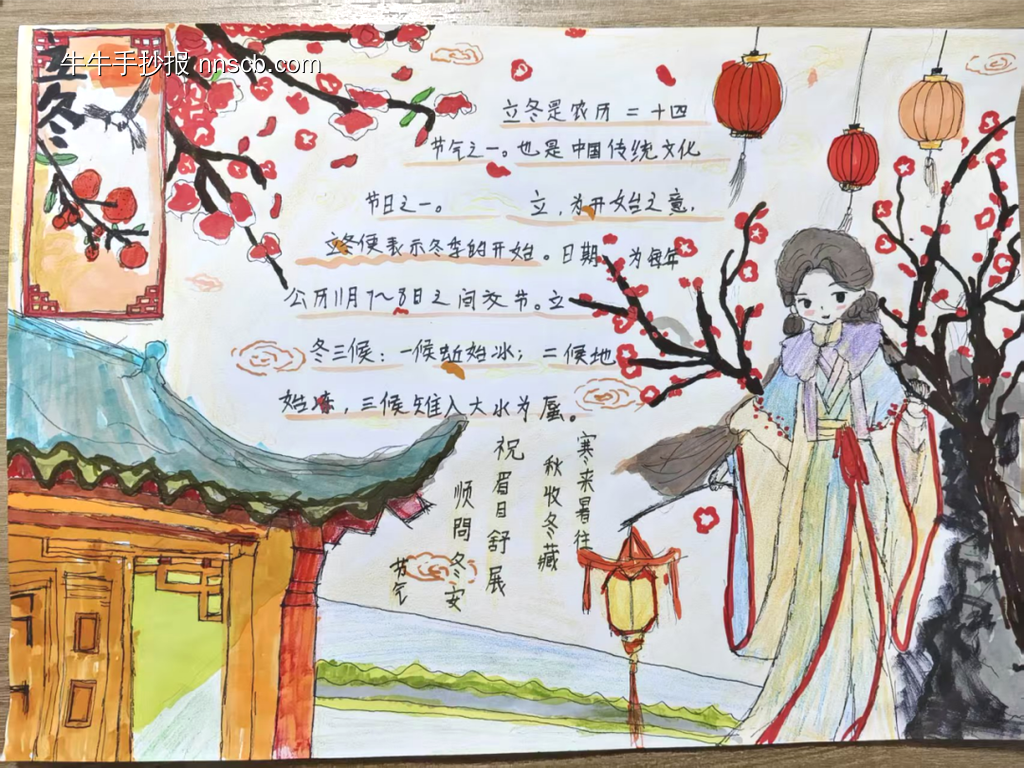 牛牛手抄报 nnscb.com
立冬
立冬是农历二十四
节气之一。也是中国传统文化
节日之一。 立,为开始之意,
立冬便表示冬季的开始。日期 为每年
公历11月7~8日之间交节。立
冬三候:一候蚯始冰;二候地
始冻,三候雉入大水为蜃。
寒来暑往
秋收冬藏
祝眉目舒展
顺問冬安
节气